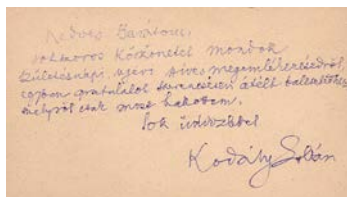 Kedves Barátom,
sokszoros köszönetet mondok
születésnapi szíves megemlékezésedről,
egyben gratulálok szerencsésen átélt balesethez,
melyről csak most hallottam.
Sok üdvözlettel
Kodály Zoltán